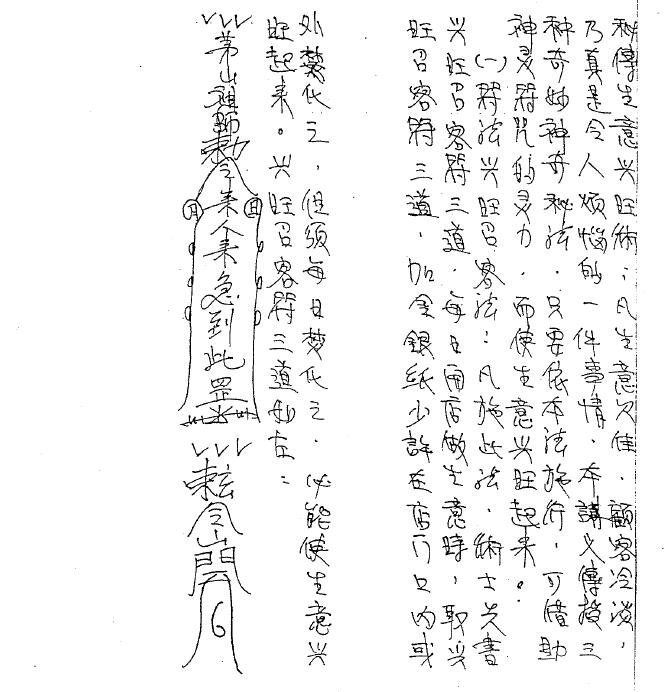 秘傳生意兴旺術：凡生意欠佳，顧客冷淡，
乃真是令人煩惱的一件事情，本講义傳授三
种奇妙神奇秘法，只要依本法施行，可借助
神灵符咒的灵力，而使生意兴旺起来。
(一)符法兴旺召客法：凡施此法，術士先書
兴旺召客符三道，每日開店做生意時，取兴
旺召客符三道，加金銀紙少許在店门口内或
外焚化之，但须每日焚化之，必能使生意兴
旺起来。兴旺召客符三道如左：
茅山祖師勅令来人来急到此罡
月
日
令山開